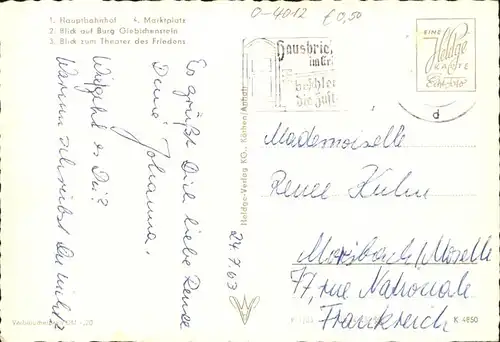 1. Hauptbahnhof   4. Marktplatz
2. Blick auf Burg Giebichenstein
3. Blick zum Theater des Friedens
0-4012
£ 0,50
Hausbrie
im Gr
beschle
die Zust
EINE
Heldge
KARTE
Echt Foto
d
Es grüßt Dich liebe Renee
Deine Johanna.
Wie geht es Dir?
Warum schreibst Du nicht?
24.7.63
Heldge-Verlag KG., Köthen/Anhalt
Mademoiselle
Renee Kuhn
Morsbach/Moselle
77, rue Nationale
Frankreich
K 4850